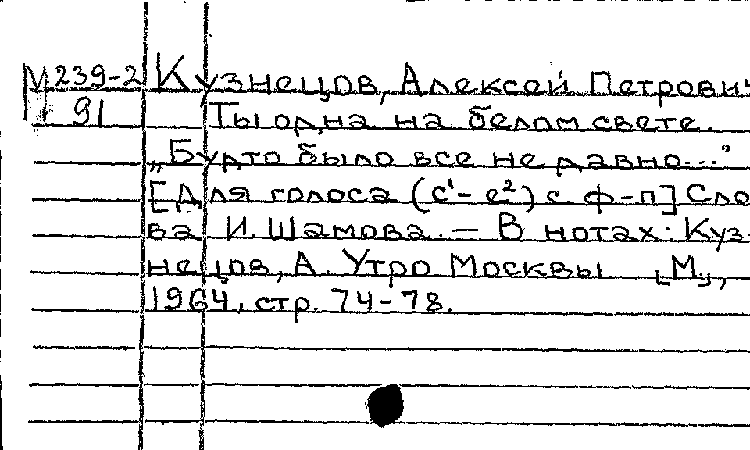 М 239-2 Кузнецов, Алексей Петрович
91 Ты одна на белом свете.
„Будто было все недавно..."
[Для голоса (c¹-e²) с ф-п] Сло
ва И. Шамова. — В нотах: Куз-
нецов, А. Утро Москвы [М.],
1964, стр. 74-78.